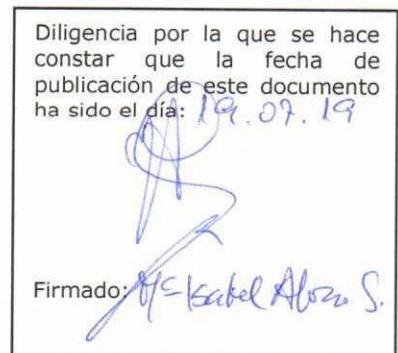 Diligencia por la que se hace
constar que la fecha de
publicación de este documento
ha sido el día: 19.07.19
Firmado: Mª Isabel Afonso S.